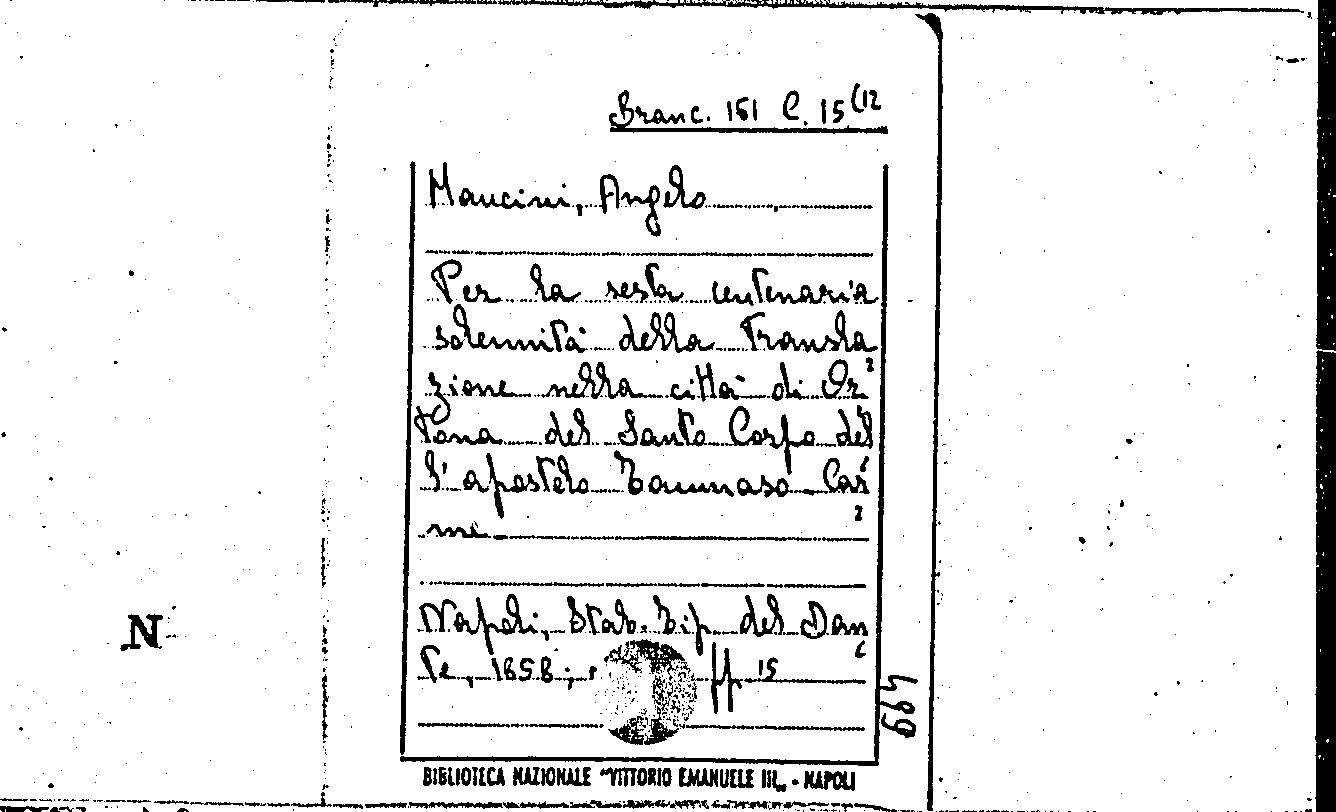 Branc. 151 C. 15(12
Mancini, Angelo
Per la sesta centenaria
solennità della Transla
zione nella città di Or
tona del Santo Corpo del
l'apostolo Tommaso. Car
me.
N
Napoli, Stab. Tip. del Dan
te, 1858; pp. 15
499
BIBLIOTECA NAZIONALE "VITTORIO EMANUELE III„ - NAPOLI